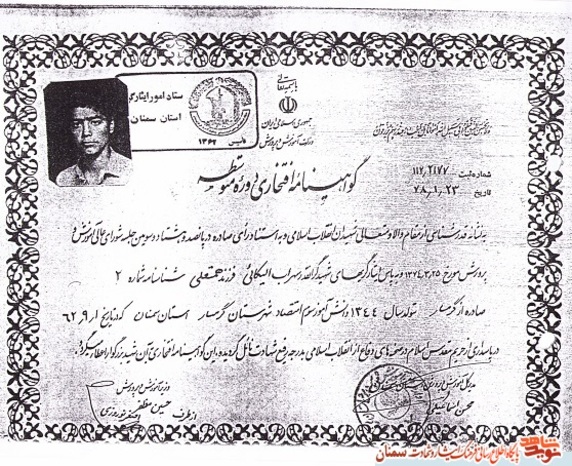 باسمه تعالی
جمهوری اسلامی ایران
وزارت آموزش و پرورش
ستاد امور ایثارگران
استان سمنان
تأسیس ۱۳۶۲
شماره ثبت ۱۱۲,۲۱۷۷
تاریخ ۷۸,۱,۲۳
گواهینامه افتخاری دوره متوسطه
به نشانه قدرشناسی از مقام والا و متعالی شهیدان انقلاب اسلامی و به استناد رأی صادره در پانصد و هشتاد و سومین جلسه شورای عالی آموزش و
پرورش مورخ ۱۳۷۴,۳,۲۵ و به پاس ایثارگریهای شهید گرانقدر سهراب الیکائی فرزند حجتعلی شناسنامه شماره ۲
صادره از گرمسار تولد سال ۱۳۴۴ دانش آموز سوم اقتصاد شهرستان گرمسار استان سمنان که در تاریخ ۶۲,۹,۱
در پاسداری از حریم مقدس اسلام در صحنه های دفاع از انقلاب اسلامی به درجه رفیع شهادت نائل گردیده بود، این گواهینامه افتخاری به آن شهید بزرگوار اعطا میگردد.
مدیرکل آموزش و پرورش استان سمنان
محسن
وزیر آموزش و پرورش
حسین مظفر
از طرف
نوید شاهد
پایگاه اطلاع رسانی فرهنگ ایثار و شهادت سمنان